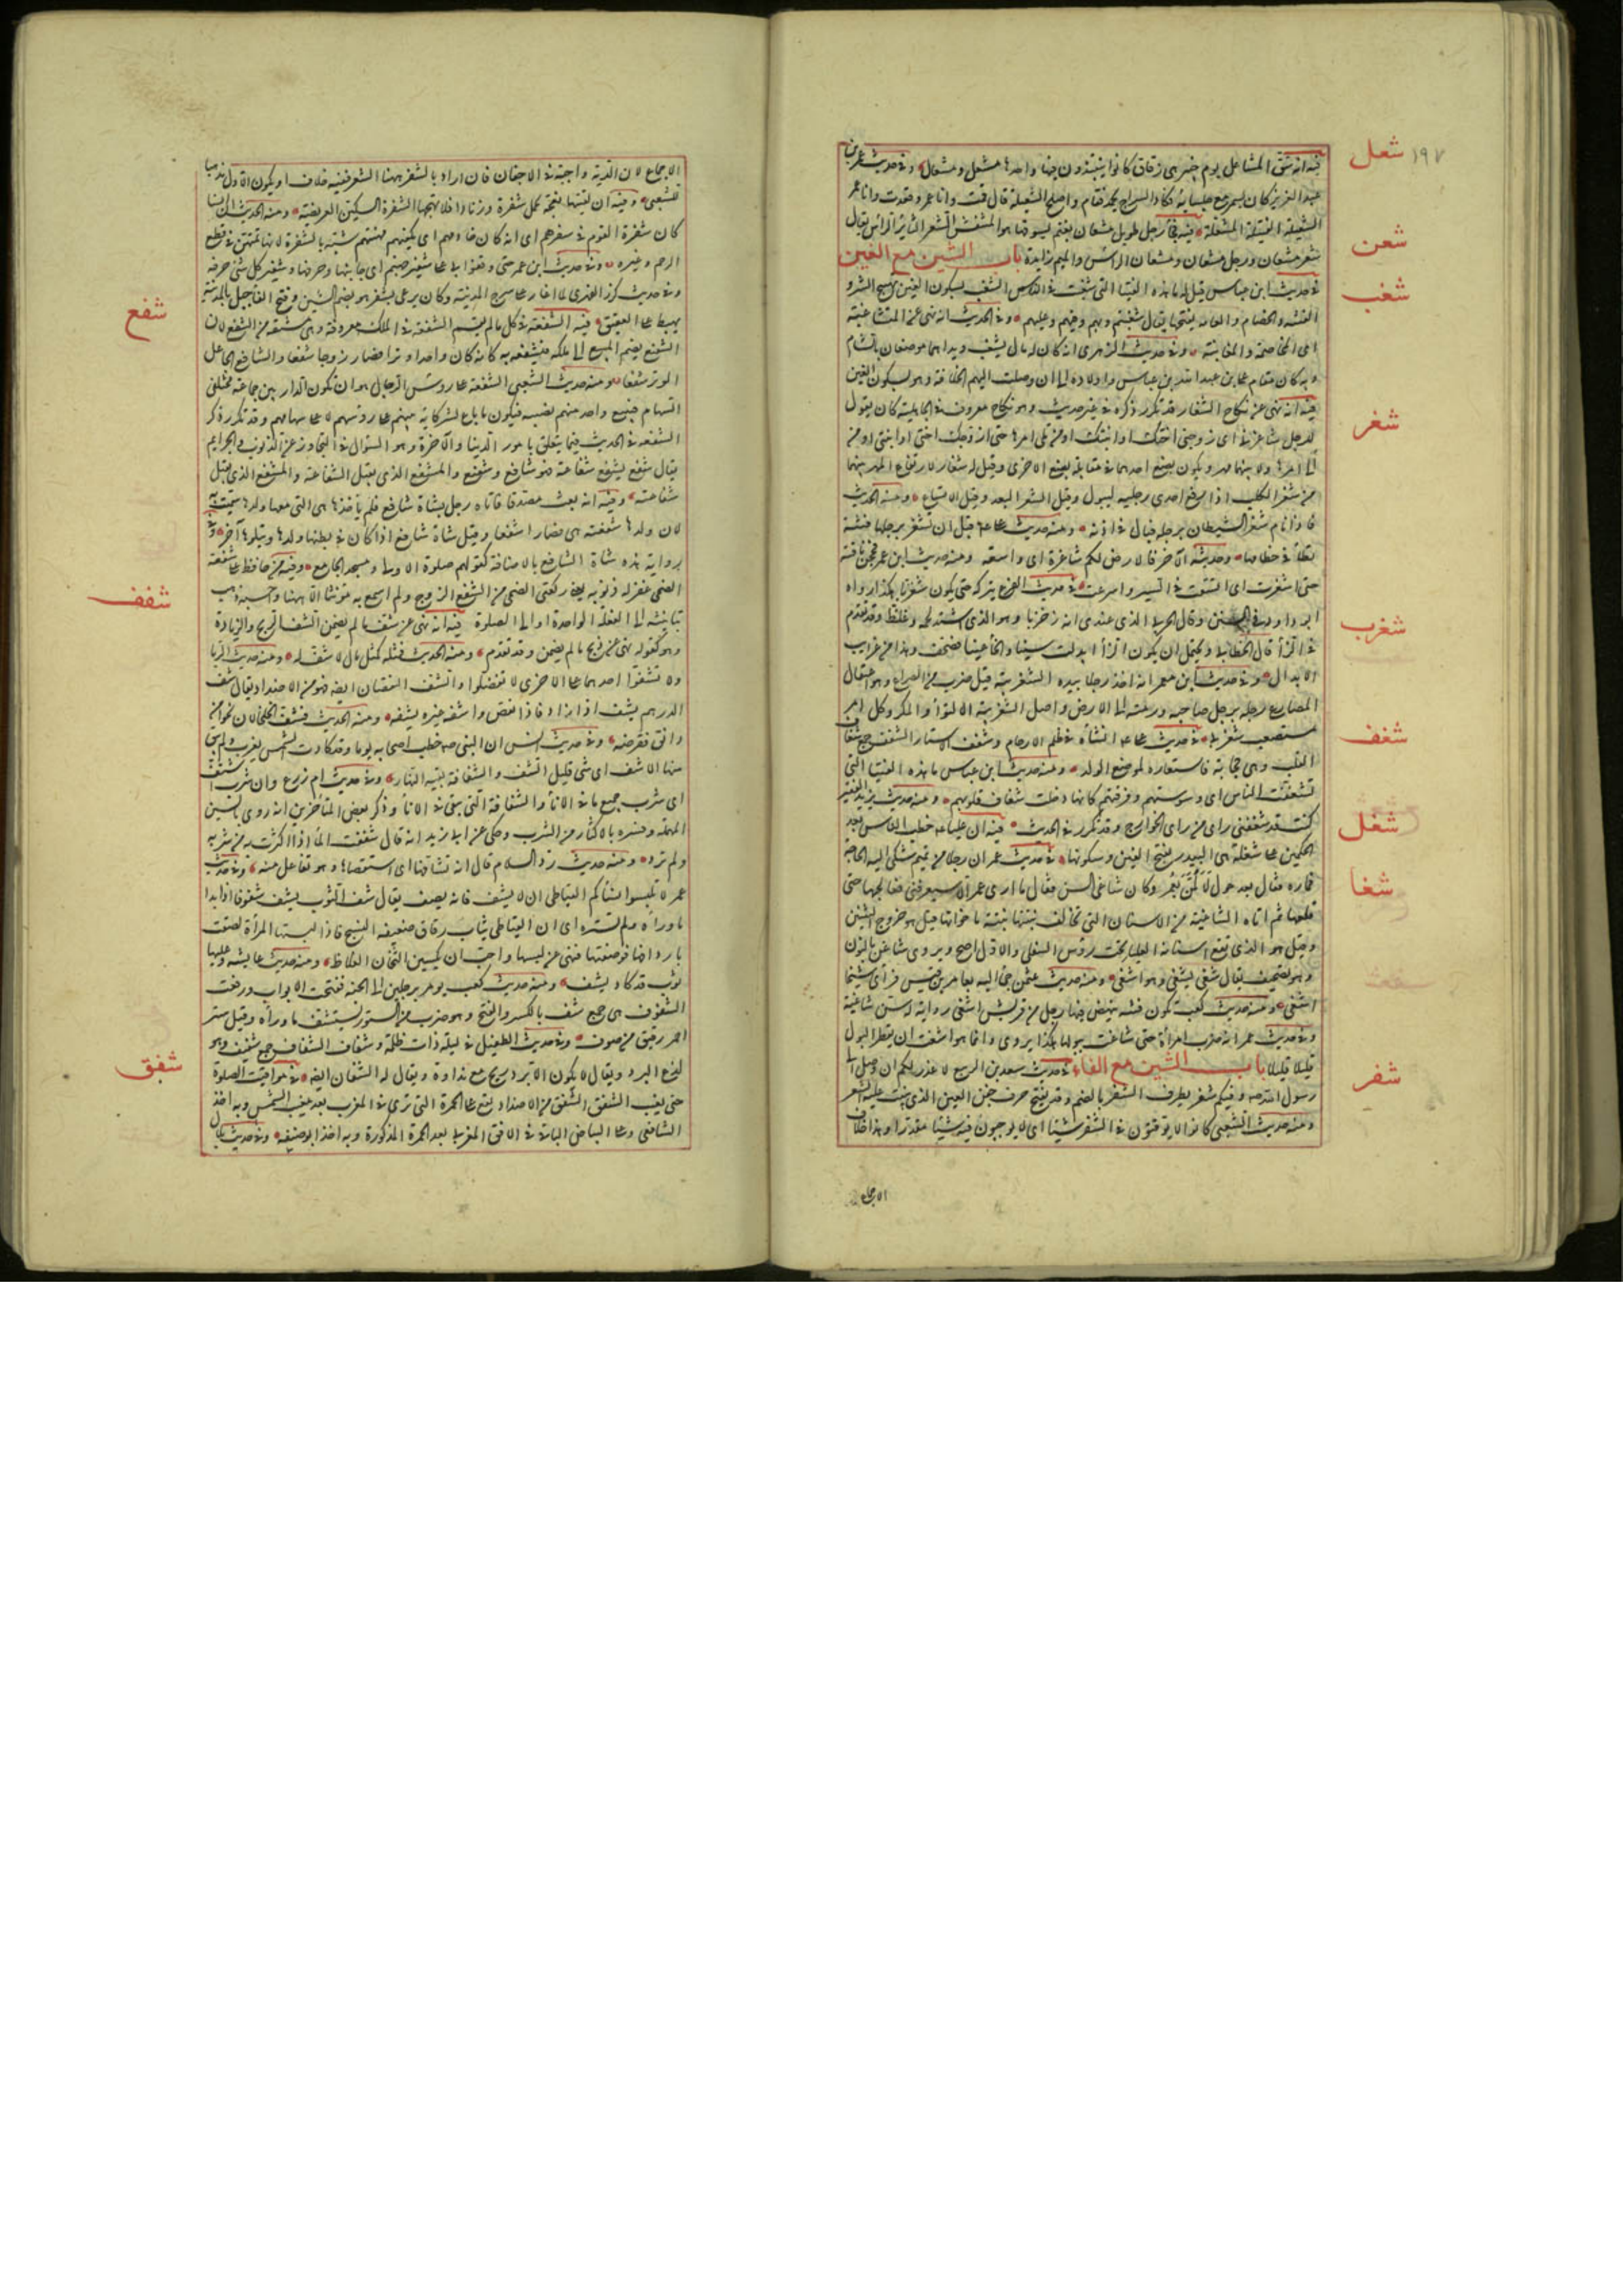 ١٩٧
شعل
فيه انه شق المشاعل يوم خيبر هى زقاق كانوا ينتبذون فيها واحدها مشعل ومشعال وفى حديث عمر بن
عبد العزيز كان يسمر مع جلسائه فكاد السراج يخمد فقام واصلح الشعيلة وقال قمت وانا عمر وقعدت وانا عمر
شعن
الشعيلة الفتيلة المشعلة فيه فجاء رجل طويل مشعان بغنم يسوقها هو المنتفش الشعر الثائر الراس يقال
شعر مشعان ورجل مشعان ومشعان الراس والميم زايدة باب الشين مع الغين
شغب
فى حديث ابن عباس قيل له ما هذه الفتيا التى شغبت فى الناس الشغب بسكون الغين تهييج الشر و
الفتنه والخصام والعامة يفتحها يقال شغبتهم وبهم وفيهم وعليهم وفى الحديث انه نهى عن المشاغبة
اى المخاصمة والمفاتنة وفى حديث الزهرى انه كان له مال بشغب وبدا هما موضعان بالشام
وبه كان مقام على بن عبد الله بن عباس واولاده الى ان وصلت اليهم الخلافة وهو بسكون الغين
شغر
فيه انه نهى عن نكاح الشغار قد تكرر ذكره فى غير حديث وهو نكاح معروف فى الجاهلية كان يقول
الرجل شاغرنى اى زوجنى اختك او ابنتك او من تلى امرها حتى ازوجك اختى او ابنتى او من
الى امرها ولا يكون بينهما مهر ويكون بضع احدهما فى مقابلة بضع الاخرى وقيل له شغار لارتفاع المهر بينهما
من شغر الكلب اذا رفع احدى رجليه ليبول وقيل الشغر البعد وقيل الاتساع ومنه الحديث
فاذا نام شغر الشيطان برجله فبال فى اذنه ومنه حديث على قبل ان تشغر برجلها فتنة
تطأ فى خطامها وحديثه الآخر فالارض لكم شاغرة اى واسعة ومنه حديث ابن عمر فحجن ناقته
شغرب
حتى اشغرت اى اتسعت فى السير واسرعت فى حديث الفرع تتركه حتى يكون شغزبا هكذا رواه
ابو داود فى السنن وقال الحربى الذى عندى انه زخزبا وهو الذى اشتد لحمه وغلظ وقد تقدم
فى الزاء قال الخطابى ويحتمل ان يكون الزاء ابدلت سينا والخاء غينا فصحف وهذا من غرايب
الابدال وفى حديث ابن معمر انه اخذ رجلا بيده الشغزبية قيل ضرب من الصراع وهو اعتقال
المصارع رجله برجل صاحبه ورميه الى الارض واصل الشغزبية الالتواء والمكر وكل امر
شغف
مستصعب شغزبى فى حديث على انشأه فى ظلم الارحام وشغف الاستار الشغف جمع شغاف
القلب وهى حجابه فاستعاره لموضع الولد ومنه حديث ابن عباس ما هذه الفتيا التى
تشغفت الناس اى وسوستهم وفرقتهم كانها دخلت شغاف قلوبهم ومنه حديث يزيد الفقير
شغل
كنت قد شغفنى راى من راى الخوارج وقد تكرر فى الحديث فيه ان عليا خطب الناس بعد
شغا
الحكمين على شغلة هى البيدر بفتح الغين وسكونها فى حديث عمر ان رجلا من تميم شكى اليه الحاجة
فماره فقال بعد حول لألمن بعمر وكان شاغى السن فقال ما ارى عمر الا سيعرفنى فعالجها حتى
قلعها ثم اتاه الشاغية من الاسنان التى تخالف نبتتها نبتة اخواتها وقيل هو خروج الثنيتين
وقيل هو الذى تقع اسنانه العليا تحت رؤس السفلى والاول اصح ويروى شاغن بالنون
وهو تصحيف يقال شغى يشغى وهو اشغى ومنه حديث عثمن جئ اليه بعامر بن قيس فرأى شيخا
اشغى ومنه حديث كعب تكون فتنه ينهض فيها رجل من قريش اشغى وفى رواية له سن شاغية
وفى حديث عمر انه ضرب امرأة حتى شاغت ببولها هكذا يروى وانما هو اشغت ان يقطر البول
شفر
قليلا قليلا باب الشين مع الفاء فى حديث سعد بن الربيع لا عذر لكم ان وصل الى
رسول الله صه وفيكم شفر يطرف الشفر بالضم وقد يفتح حرف جفن العين الذى ينبت عليه الشعر
ومنه حديث الشعبى كانوا لا يوقتون فى الشفر شيئا اى لا يوجبون فيه شيئا مقدرا وهذا خلاف
الاجماع
الاجماع لان الدية واجبة فى الاجفان فان اراد بالشفر ههنا الشعر ففيه خلاف او يكون الاول مذهبا
للشعبى وفيه ان لقيتها نعجة تحمل شفرة وزنادا فلا تهجها الشفرة السكين العريضة ومنه الحديث ان انسا
كان شفرة القوم فى سفرهم اى انه كان خادمهم اى يكفيهم مهنتهم شبه بالشفرة لانها تمتهن فى قطع
اللحم وغيره وفى حديث ابن عمر حتى وقفوا بى على شفير جهنم اى جانبها وحرفها وشفير كل شئ حرفه
وفى حديث كرز الفهرى لما اغار على سرح المدينة وكان يرعى بشفر هو بضم الشين وفتح الفاء جبل بالمدينة
شفع
يهبط على العقيق فيه الشفعة فى كل مالم يقسم الشفعة فى الملك معروفة وهى مشتقة من الشفع لان
الشفيع يضم المبيع الى ملكه فيشفعه به كانه كان واحدا وترا فصار زوجا شفعا والشافع الجاعل
الوتر شفعا ومنه حديث الشعبى الشفعة على رؤس الرجال هو ان تكون الدار بين جماعة مختلفى
السهام فيبيع واحد منهم نصيبه فيكون ما باع لشركائه بينهم على رؤسهم لا على سهامهم وقد تكرر ذكر
الشفعة فى الحديث فيما يتعلق بامور الدنيا والآخرة وهو السؤال فى التجاوز عن الذنوب والجرايم
يقال شفع يشفع شفاعة فهو شافع وشفيع والمشفع الذى يقبل الشفاعة والمشفع الذى تقبل
شفاعته وفيه انه بعث مصدقا فاتاه رجل بشاة شافع فلم يأخذها هى التى معها ولدها سميت به
لان ولدها شفعته هى فصارا شفعا وقيل شاة شافع اذا كان فى بطنها ولدها ويتلوها آخر وفى
رواية هذه شاة الشافع بالاضافة كقولهم صلوة الاولى ومسجد الجامع وفيه من حافظ على شفعة
شفف
الضحى غفر له ذنوبه يعنى ركعتى الضحى من الشفع الزوج ولم اسمع به مؤنثا الا ههنا واحسبه ذهب
بتانيثه الى الفعلة الواحدة او الى الصلوة فيه انه نهى عن شف ما لم يضمن الشف الربح والزيادة
وهو كقوله نهى عن ربح ما لم يضمن وقد تقدم ومنه الحديث فمثله كمثل مال لا شف له ومنه حديث الربا
ولا تشفوا احدهما على الاخرى لا تفضلوا والشف النقصان ايضا فهو من الاضداد يقال شف
الدرهم يشف اذا زاد واذا نقص واشفه غيره يشفه ومنه الحديث فشف الخلخالان نحوا من
دانق فقرضه وفى حديث انس ان النبى صه خطب اصحابه يوما وقد كادت الشمس تغرب ولم يبق
منها الا شف اى شئ قليل الشف والشفافة بقية النهار وفى حديث ام زرع وان شرب اشتف
اى شرب جميع ما فى الاناء والشفافة التى تبقى فى الاناء وذكر بعض المتأخرين انه روى بالسين
المهملة وفسره بالاكثار من الشرب وحكى عن ابى زيد انه قال شففت الماء اذا اكثرت من شربه
ولم ترو ومنه حديث رد السلام قال انه تشافها اى استقصاها وهو تفاعل منه وفى حديث
عمر لا تلبسوا نساءكم القباطى ان لا يشف فانه يصف يقال شف الثوب يشف شفوفا اذا بدا
ما وراءه ولم يستره اى ان القباطى ثياب رقاق ضعيفه النسج فاذا لبستها المرأة لصقت
باردافها فوصفتها فنهى عن لبسها واحب ان يكسين الثخان الغلاظ ومنه حديث عايشه وعليها
ثوب قد كاد يشف ومنه حديث كعب يؤمر برجلين الى الجنه ففتحت الابواب ورفعت
الشفوف هى جمع شف بالكسر والفتح وهو ضرب من الستور يستشف ما وراءه وقيل ستر
احمر رقيق من صوف وفى حديث الطفيل فى ليلة ذات ظلمة وشفاف الشفاف جمع شفيف وهو
شفق
لذع البرد ويقال لا يكون الا برد ريح مع نداوة ويقال له الشفان ايضا فى مواقيت الصلوة
حتى يغيب الشفق الشفق من الاضداد يقع على الحمرة التى ترى فى المغرب بعد مغيب الشمس وبه اخذ
الشافعى وعلى البياض الباقى فى الافق الغربى بعد الحمرة المذكورة وبه اخذ ابو حنيفه وفى حديث بلال